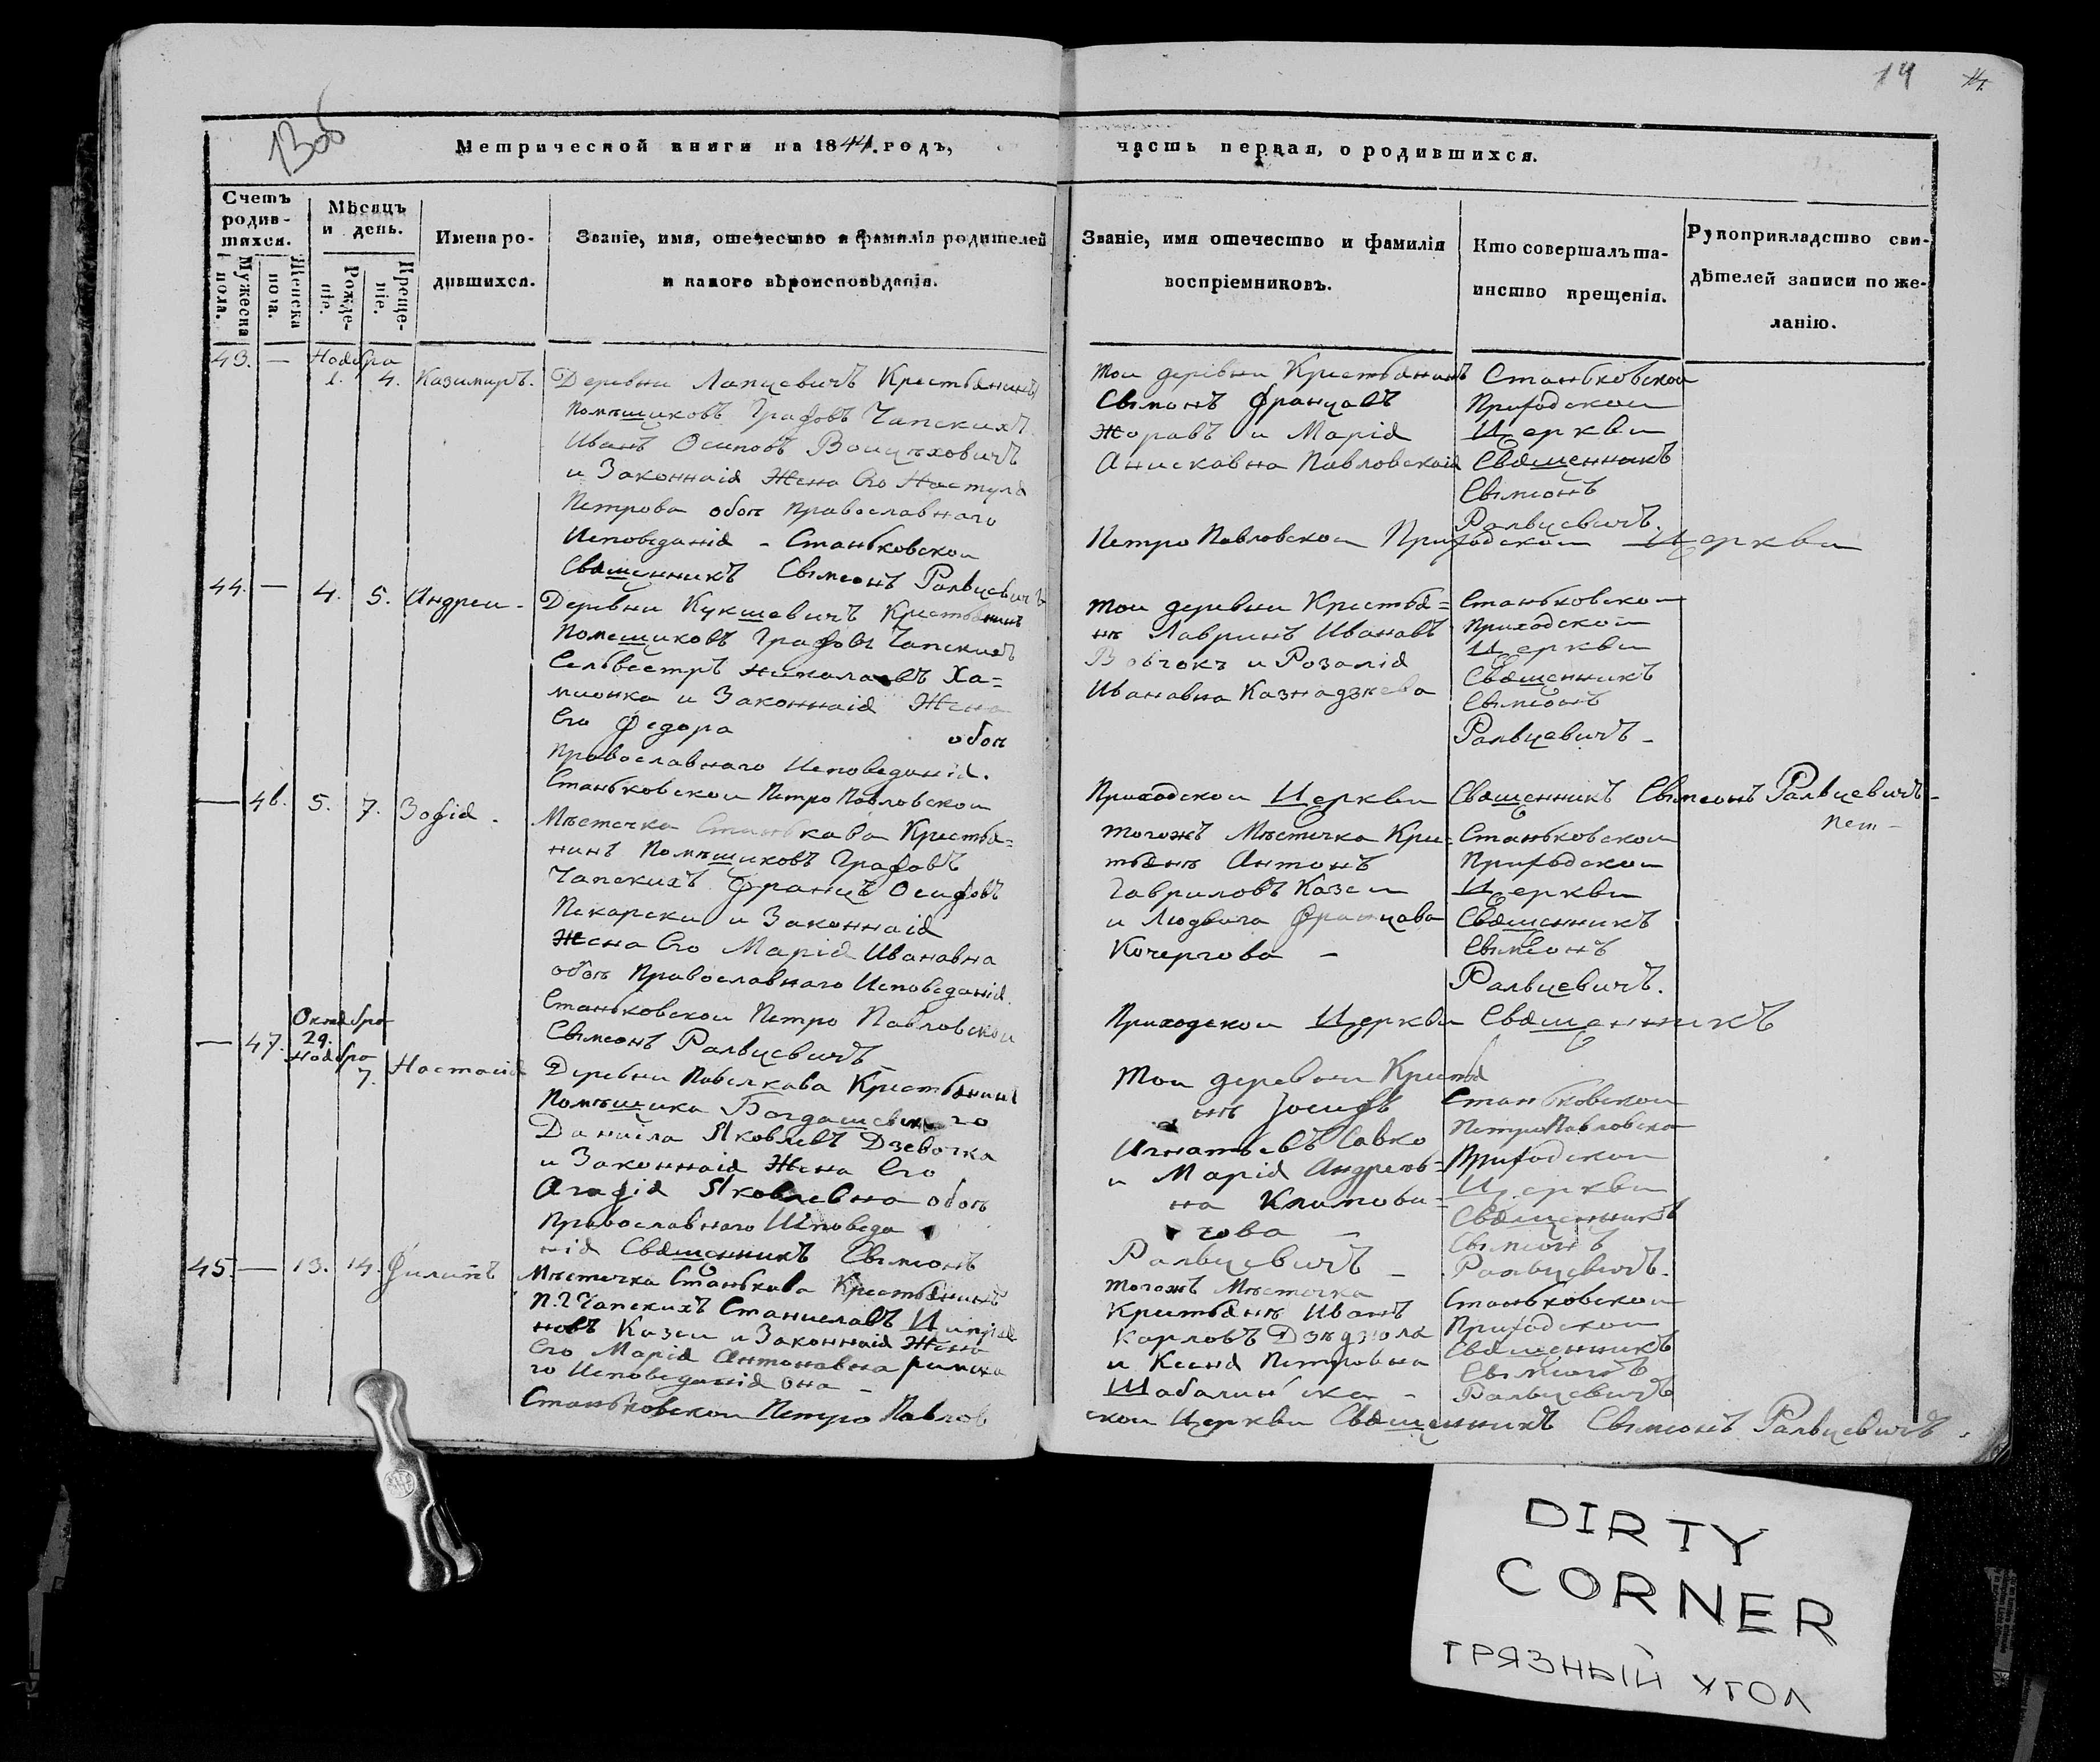 13об
14
14.
Метрической книги на 1844. годъ,
часть первая, о родившихся.
Счетъ родив-шихся.
Мужеска пола.
Женска пола.
Мѣсяцъ и день.
Рожде-ніе.
Креще-ніе.
Имена ро-дившихся.
Званіе, имя, отечество и фамилія родителей
и какого вѣроисповѣданія.
Званіе, имя отечество и фамилія
воспріемниковъ.
Кто совершалъ та-
инство крещенія.
Рукоприкладство сви-
дѣтелей записи по же-
ланію.
43. — Ноября 1. 4. Казимиръ.
Деревни Лапцевичъ Крестьянинъ
Помѣщиковъ Графовъ Чапскихъ
Иванъ Осиповъ Воицѣховичъ
и Законная Жена Его Настуля
Петрова обоя Православнаго
Исповеданія - Станьковскои
Священникъ Сѵмеонъ Ральцевичъ
Тои деревни Крестьянинъ
Сѵмонъ Францовъ
Жоравъ и Марія
Анискавна Павловская
Петро Павловскои Приходскои Церкви
Станьковскои
Приходскои
Церкви
Священникъ
Сѵмеонъ
Ральцевичъ.
44. — 4. 5. Андреи -
Деревни Кукшевичъ Крестьянинъ
Помещиковъ Графовъ Чапскихъ
Сельвестръ Николаевъ Ха=
мионка и Законная Жена
Его Федора обоя
Православнаго Исповеданія.
Станьковскои Петро Павловскои
Тои деревни Крестья=
нѣ Лавринъ Ивановъ
Вовчокъ и Розалія
Ивановна Казнадзѣева
Приходскои Церкви Священникъ Сѵмеонъ Ральцевичъ -
Станьковскои
Приходскои
Церкви
Священникъ
Сѵмеонъ
Ральцевичъ -
— 46. 5. 7. Зофія -
Мѣстечка Станькава Крестья=
нинъ Помѣщиковъ Графовъ
Чапскихъ Францъ Осифовъ
Пекарски и Законная
Жена Его Марія Ивановна
обоя Православнаго Исповеданія.
Станьковскои Петро Павловскои
Сѵмеонъ Ральцевичъ
Тогожъ Мѣстечка Крес-
тьянѣ Антонъ
Гавриловъ Казеи
и Людвига Францава
Кочергова -
Приходскои Церкви Священникъ
Станьковскои
Приходскои
Церкви
Священникъ
Сѵмеонъ
Ральцевичъ.
— 47. Октября 29. Ноября 7. Настасія
Деревни Павелкава Крестьянинъ
Помѣщика Богдашевскаго
Даниіла Яковлевъ Дзевочка
и Законная Жена Его
Агафія Яковлевна обоя
Православнаго Исповеда
нія Священникъ Сѵмеонъ
Тои деревни Крестья
нѣ Іосифъ
Игнатьевъ Савко
и Марія Андреев=
на Климови=
чова -
Ральцевичъ -
Станьковскои
Петро Павловско
Приходскои
Церкви
Священникъ
Сѵмеонъ
Ральцевичъ.
45. — 13. 14. Филипъ
Мѣстечка Станькава Крестьянинъ
П. Г Чапскихъ Станиславъ Ципріа
новъ Казеи и Законная Жена
Его Марія Антонавна римска
го Исповеданія она -
Станьковскои Петро Павлов
Тогожъ Мѣстечка
Крестьянѣ Иванъ
Карловъ Дзядзюла
и Ксеня Петровна
Шабалинска -
скои Церкви Священникъ Сѵмеонъ Ральцевичъ.
Станьковскои
Приходскои
Священникъ
Сѵмеонъ
Ральцевичъ
DIRTY
CORNER
ГРЯЗНЫЙ УГОЛ